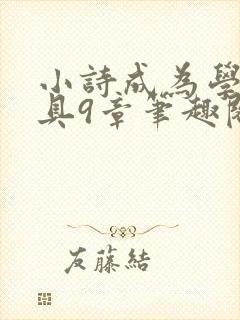 小詩成為學
具9章筆趣閱
友藤結